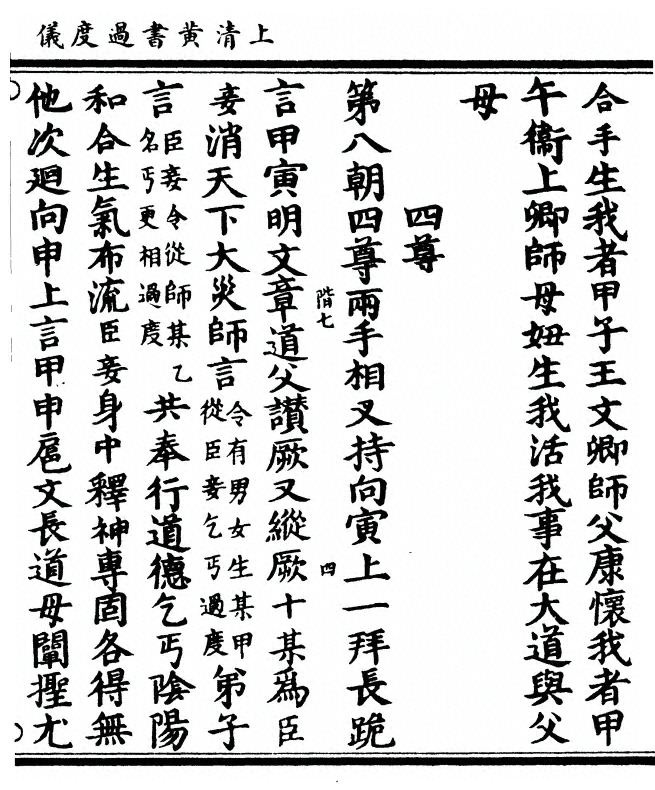 上清黃書過度儀
合手生我者甲子王文卿師父康懷我者甲
午衞上卿師母妞生我活我事在大道與父
母
四尊
第八朝四尊兩手相叉持向寅上一拜長跪
階七
四
言甲寅明文章道父讃厥又縱厥十某爲臣
妾消天下大災師言令有男女生某甲從臣妾乞丐過度弟子
言臣妾令從師某乙名丐更相過度共奉行道德乞丐陰陽
和合生氣布流臣妾身中釋神專固各得無
他次廻向申上言甲申扈文長道母闡尤